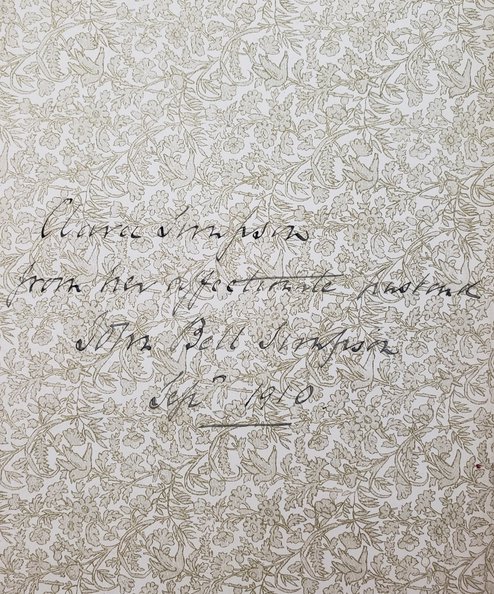 Clara Simpson
from her affectionate husband
John Bell Simpson
Sepr 1910